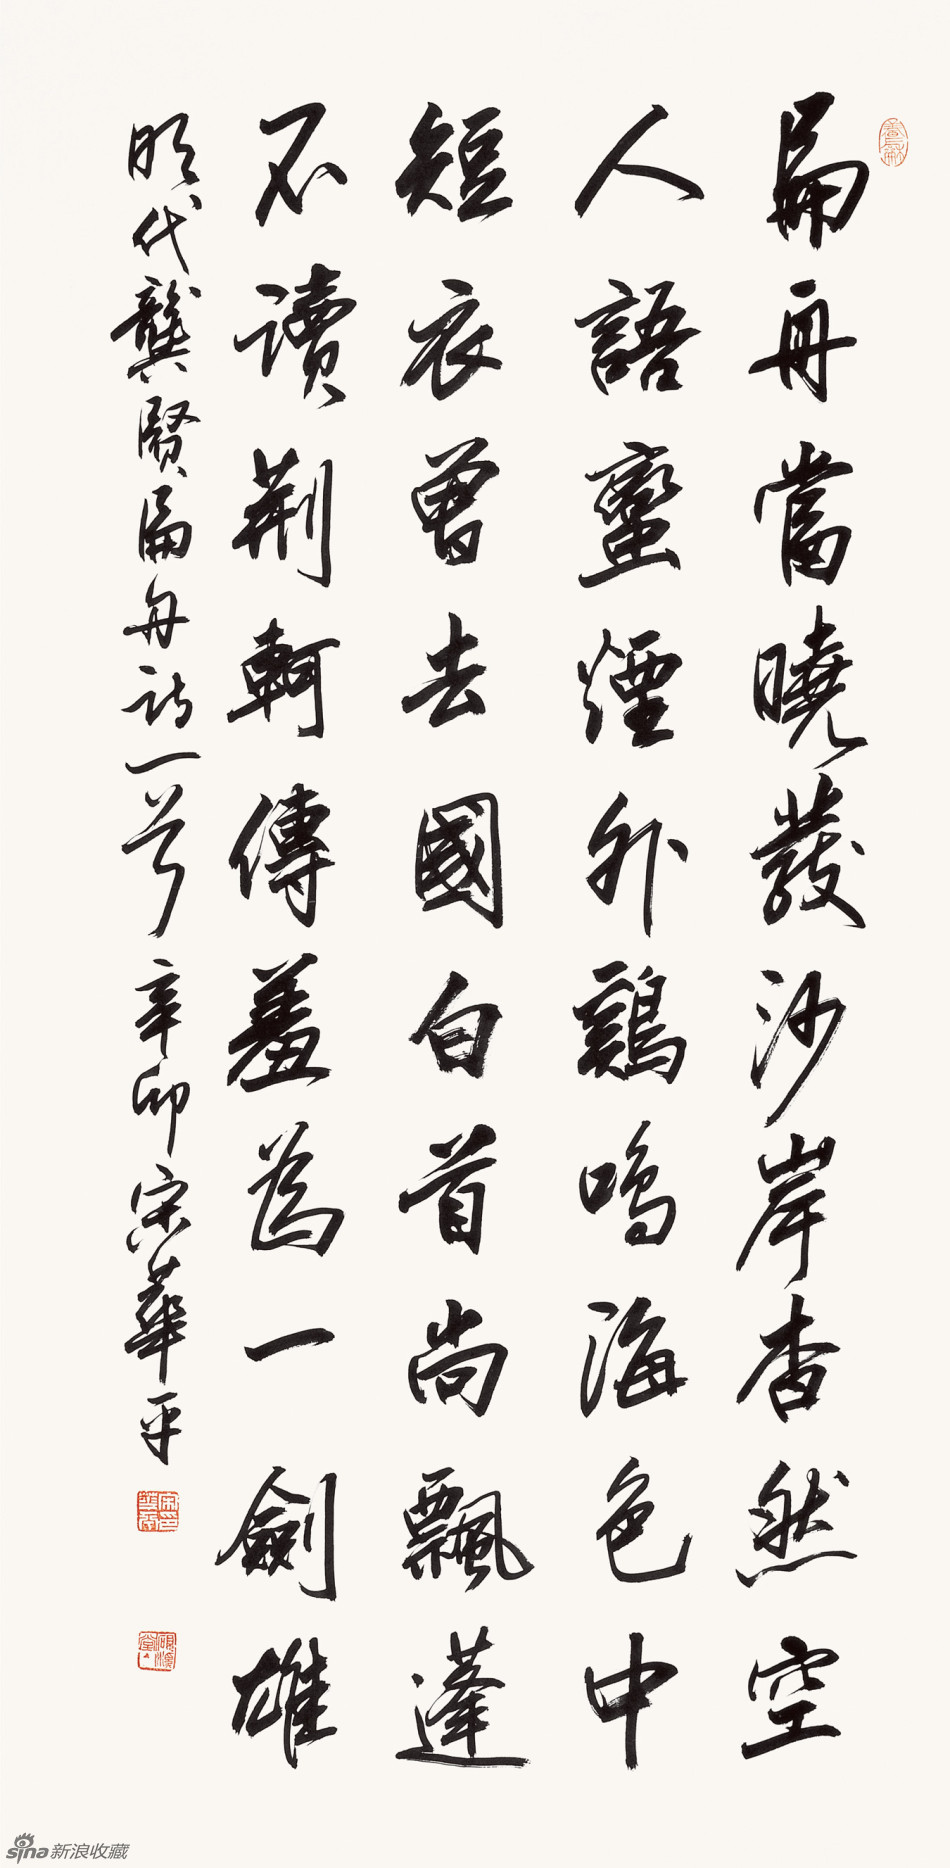 扁舟當曉發沙岸杳然空
人語蠻煙外鷄鳴海色中
短衣曾去國白首尚飄蓬
不讀荆軻傳羞為一劍雄
明代龔賢扁舟诗一首辛卯宋華平
sina新浪收藏